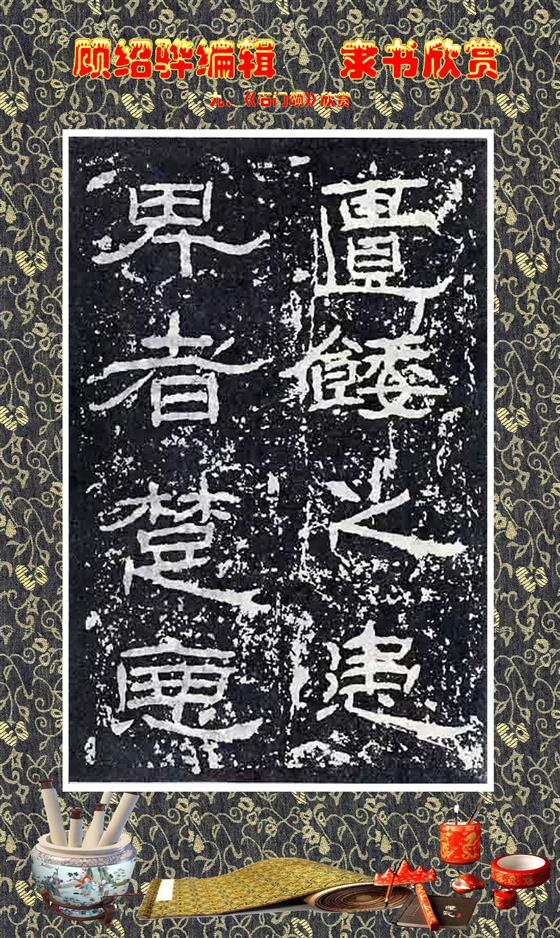 顾绍骅编辑 隶书欣赏
九、《石门颂》欣赏
匱餧之患
卑者楚惡